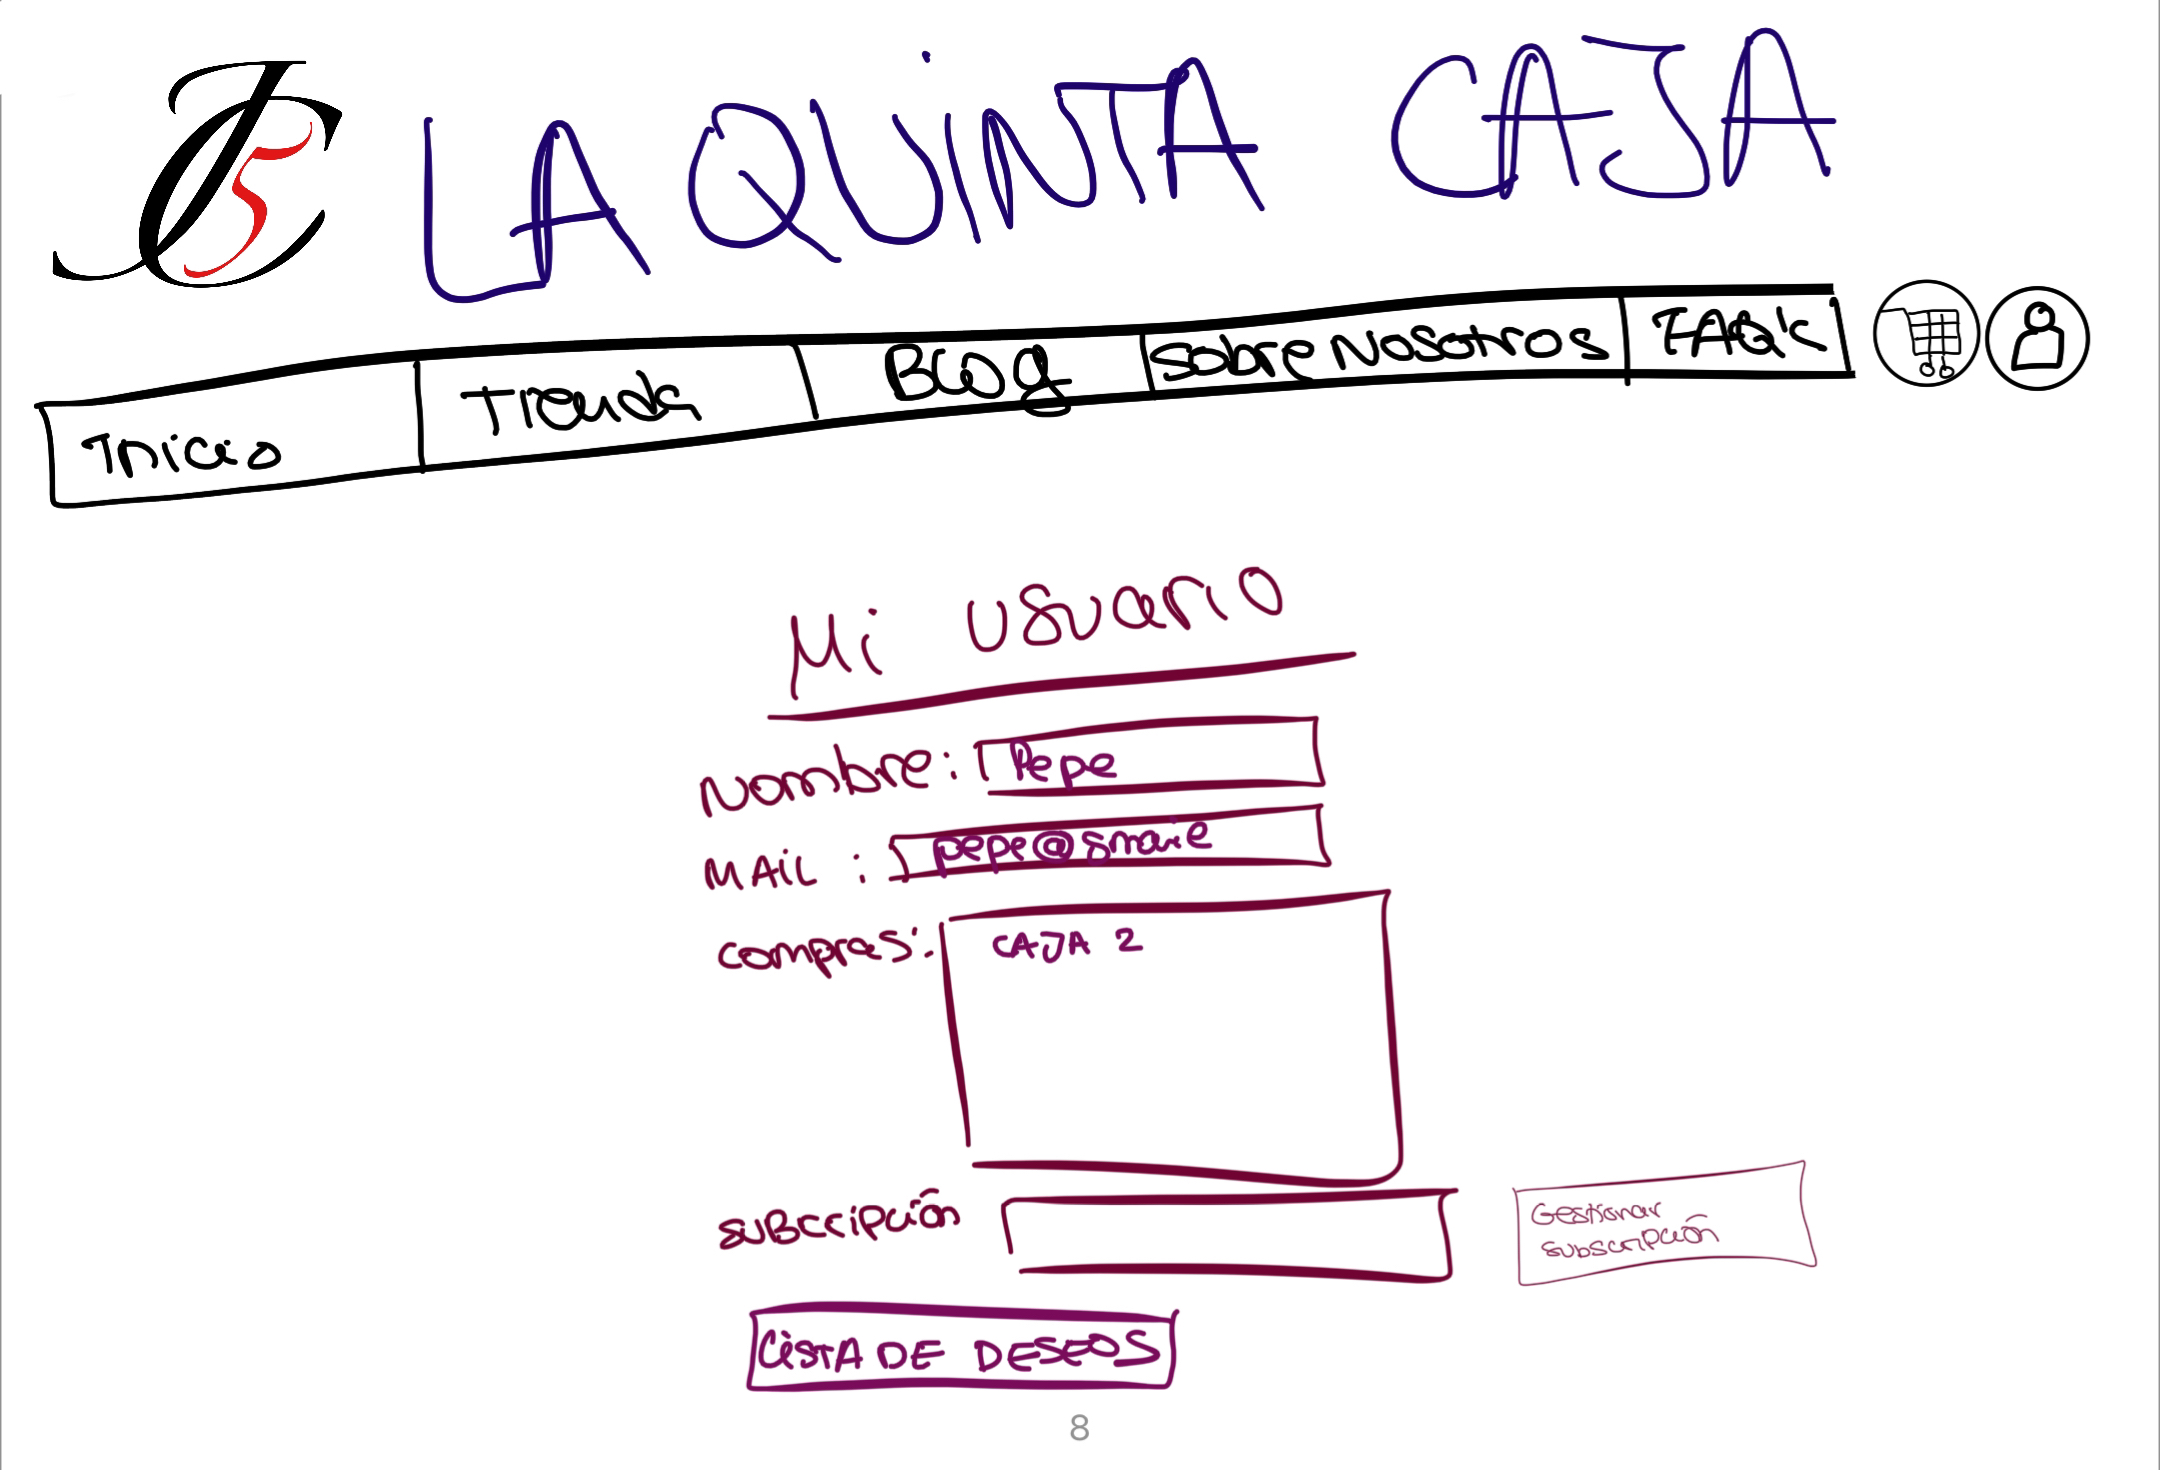 LA QUINTA CAJA
Inicio
Tienda
Blog
Sobre Nosotros
FAQ's
Mi usuario
Nombre: Pepe
MAIL : pepe@gmail
compras: CAJA 2
SUBCCIPCIÓN
Gestionar
subscripción
LISTA DE DESEOS
8